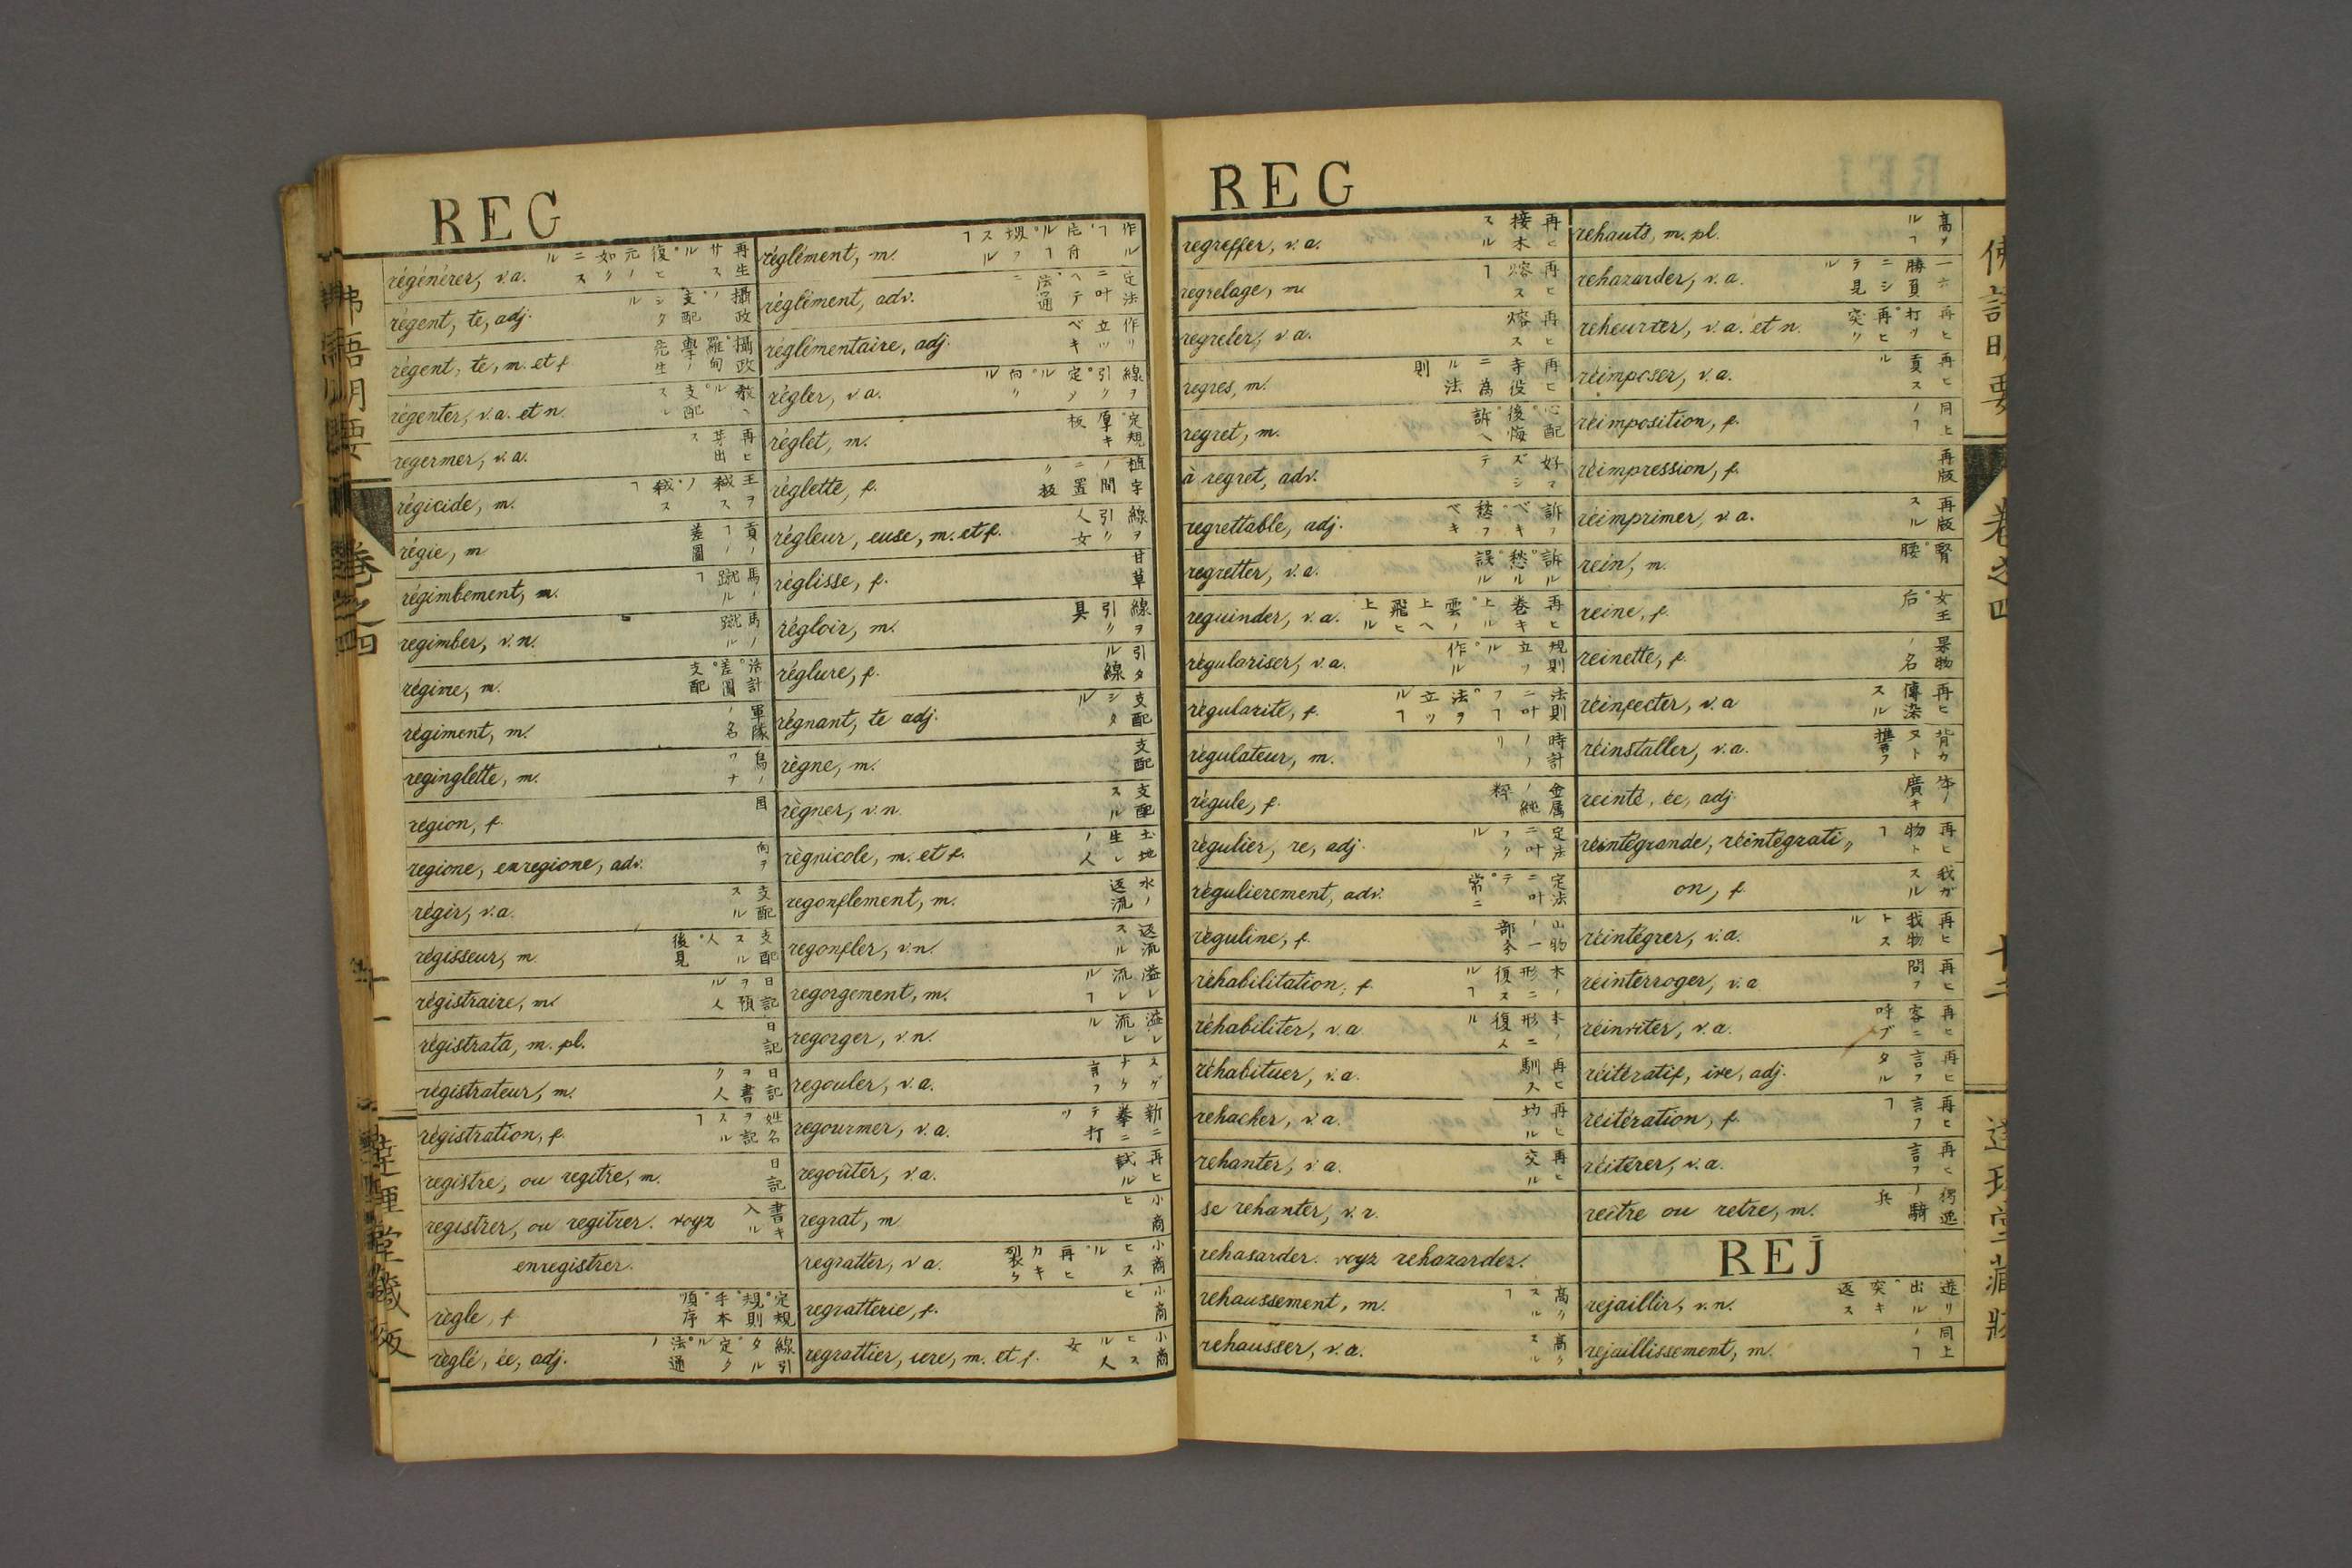 REG
régénérer, v.a. 再生サスル。復ヒ元ノ如クニスル
régent, te, adj. 攝政ノ。支配シタル
régent, te, m. et f. 攝政。羅甸學ノ先生
régenter, v.a. et n. 敎ヘル。支配スル
regermer, v.a. 再ヒ芽出ス
régicide, m. 王ヲ弑スノ。弑スヿ
régie, m 貢ノヿノ差圖
régimbement, m. 馬ノ蹴ルヿ
regimber, v.n. 馬ノ蹴ル
régime, m. 活計。差圖。支配
régiment, m. 軍隊ノ名
reginglette, m. 鳥ノワナ
région, f.
regione, enregione, adv. 向ヲ
régir, v.a. 支配スル
régisseur, m 支配スル人。後見
régistraire, m. 日記ヲ預ル人
régistrata, m. pl. 日記
régistrateur, m. 日記ヲ書ク人
régistration, f. 姓名ヲ記スルヿ
registre, ou regitre, m. 日記
registrer, ou regitrer. voyz 書キ入ル
enregistrer.
règle, f 定規。規則。手本。順序
règlé, ée, adj. 線引タル。定タル。法通ノ
réglément, m.
réglément, adv. 定法ニ叶ヘテ。法通ニ
réglémentaire, adj. 作リ立ツベキ
régler, v.a. 線ヲ引ク。定メル。向リル
réglet, m. 定規。厚キ板
réglette, f. 植字ノ間ニ置リ板
régleur, euse, m. et f. 線ヲ引リ人女
réglisse, f. 甘草
régloir, m. 線ヲ引リ具
réglure, f. 引タル線
régnant, te adj. 支配シタル
règne, m. 支配
règner, v.n. 支配スル
règnicole, m. et f. 土地ノ生レノ人
regonflement, m. 水ノ返流
regonfler, v.n. 返流スル
regorgement, m. 溢レ流レルヿ
regorger, v.n. 溢レ流レル
regouler, v.a. スゲナク言フ
regourmer, v.a. 新ニ拳ニテ打ツ
regoûter, v.a. 再ヒ試ル
regrat, m 小商ヒ
regratter, v.a. 小商ヒスル。再ヒカキ裂ク
regratterie, f. 小商ヒ
regrattier, iere, m. et f. 小商ヒスル人女
佛語明要
卷之四
十一
達理堂藏版
REG
regreffer, v.a. 再ヒ接木スル
regrelage, m. 再ヒ熔スヿ
regreler, v.a. 再ヒ熔ス
regres, m. 再ヒ寺役ニ為ル法則
regret, m. 心配。後悔。訴ヘ
à regret, adv. 好マズシテ
regrettable, adj. 訴フベキ。愁フベキ
regretter, v.a. 訴ル。愁ル。誤ル
reguinder, v.a. 再ヒ卷キ上ル。雲ノ上ヘ飛ヒ上ル
régulariser, v.a. 規則立ツル。作ル
régularité, f. 法則ニ叶フヿ。法ヲ立ツルヿ
régulateur, m.
régule, f. 金属ノ純粹
régulier, re, adj. 定法ニ叶フ
régulierement, adv. 定法ニ叶テ。常ニ
réguline, f. 山物ノ一部分
réhabilitation, f 本ノ形ニ復スルヿ
réhabiliter, v.a 本ノ形ニ復スル
réhabituer, v.a. 再ヒ馴ス
rehacher, v.a. 再ヒ切ル
rehanter, v.a. 再ヒ交ル
se rehanter, v.r.
rehasarder. voyz rehazarder.
rehaussement, m. 高クスルヿ
rehausser, v.a. 高クスル
rehauts, m. pl.
rehazarder, v.a. 一六勝負ニシテ見ル
reheurter, v.a. et n. 再ヒ打リ。再ヒ突リ
réimposer, v.a. 再ヒ貢スル
réimposition, f. 同上ノヿ
réimpression, f. 再版
réimprimer, v.a. 再版スル
rein, m. 腎。腰
reine, f. 女王。后
reinette, f. 果物ノ名
réinfecter, v.a 再ヒ傳染スル
réinstaller, v.a.
reinté, ée, adj.
réintégrande, réintégrati〃 再ヒ我ガ物トスルヿ
on, f.
réintégrer, v.a. 再ヒ我物トスル
réinterroger, v.a 再ヒ問フ
réinviter, v.a. 再ヒ客ニ呼ブ
réitératif, ive, adj. 再ヒ言フタル
réitération, f. 再ヒ言フヿ
réitérer, v.a. 再ヒ言フ
reitre ou retre, m. 獨逸ノ騎兵
REJ
rejaillir, v.n. 迸リ出ル。突キ返ス
rejaillissement, m. 同上ノヿ
佛語明要
卷之四
十二
達理堂藏版